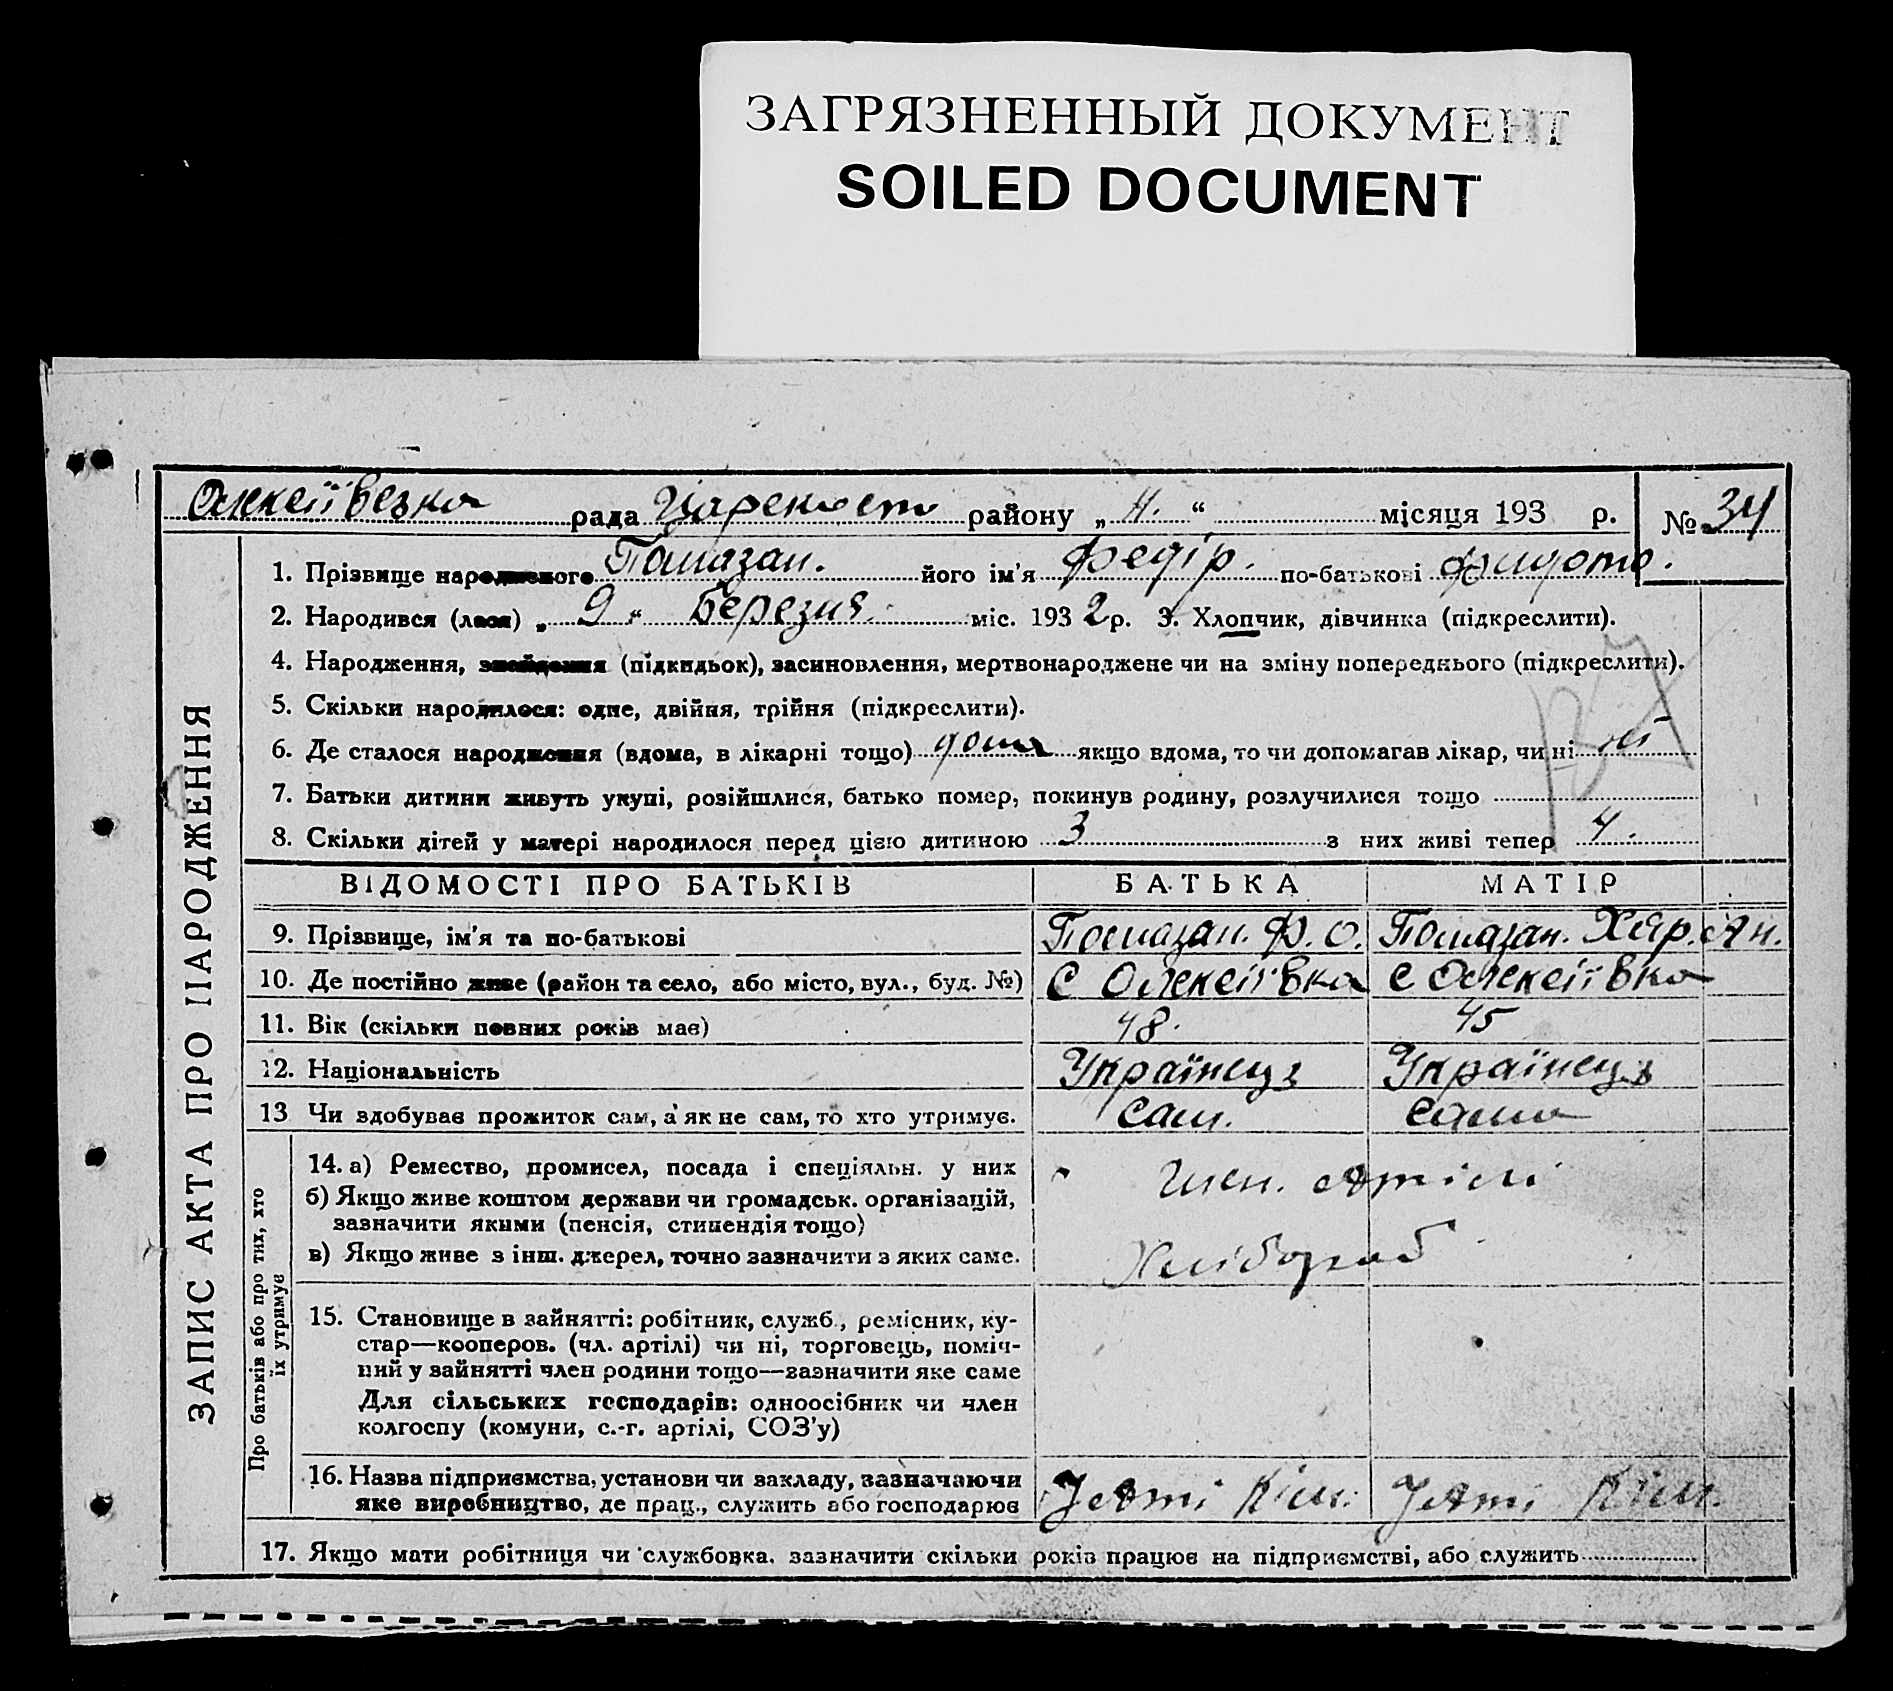 ЗАГРЯЗНЕННЫЙ ДОКУМЕНТ
SOILED DOCUMENT
Олексіївська рада района району „ 4. “ місяця 193 р. № 34
1. Прізвище народженого Помазан. його ім'я Федір. по-батькові Фидото.
2. Народився (лася) „ 9 “ Березня міс. 193 2 р. 3. Хлопчик, дівчинка (підкреслити).
4. Народження, знайдення (підкидьок), засиновлення, мертвонароджене чи на зміну попереднього (підкреслити).
5. Скільки народилося: одне, двійня, трійня (підкреслити).
6. Де сталося народження (вдома, в лікарні тощо) дома якщо вдома, то чи допомагав лікар, чи ні ні
7. Батьки дитини живуть укупі, розійшлися, батько помер, покинув родину, розлучилися тощо
8. Скільки дітей у матері народилося перед цією дитиною 3 з них живі тепер 4.
ЗАПИС АКТА ПРО НАРОДЖЕННЯ
ВІДОМОСТІ ПРО БАТЬКІВ БАТЬКА МАТІР
9. Прізвище, ім'я та по-батькові Помазан. Ф. О. Помазан. Хар. Ан.
10. Де постійно живе (район та село, або місто, вул., буд. №) С Олексіївка С Олексіївка
11. Вік (скільки повних років має) 48. 45
12. Національність Українець Українець
13 Чи здобуває прожиток сам, а як не сам, то хто утримує. Сам. Сама
Про батьків або про тих, хто їх утримує
14. а) Ремество, промисел, посада і спеціяльн. у них Член. Артілі
б) Якщо живе коштом держави чи громадськ. організацій,
зазначити якими (пенсія, стипендія тощо)
в) Якщо живе з інш. джерел, точно зазначити з яких саме. Хлібороб
15. Становище в зайнятті: робітник, служб., ремісник, ку-
стар—кооперов. (чл. артілі) чи ні, торговець, поміч-
ний у зайнятті член родини тощо—зазначити яке саме
Для сільських господарів: одноосібник чи член
колгоспу (комуни, с.-г. артілі, СОЗ'у)
16. Назва підприємства, установи чи закладу, зазначаючи
яке виробництво, де прац., служить або господарює
17. Якщо мати робітниця чи службовка, зазначити скільки років працює на підприємстві, або служить